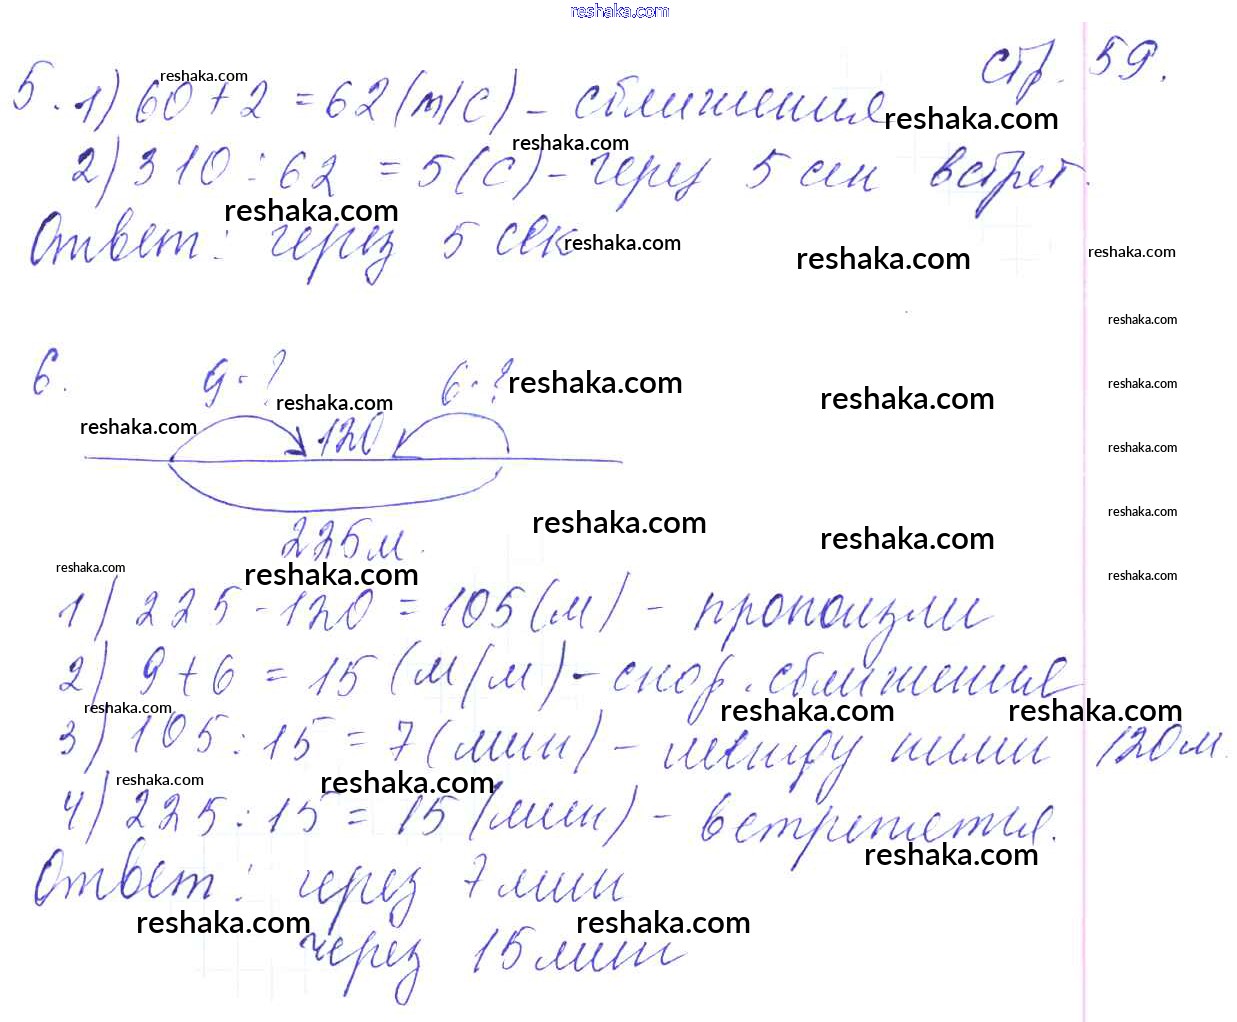 reshaka.com
стр. 59.
reshaka.com
5. 1) 60 + 2 = 62 (м/с) - сближения
reshaka.com
reshaka.com
2) 310 : 62 = 5 (с) - через 5 сек встрет.
reshaka.com
Ответ: через 5 сек
reshaka.com
reshaka.com
reshaka.com
reshaka.com
6. 9 · ? 6 · ?
reshaka.com
reshaka.com
reshaka.com
reshaka.com
reshaka.com
120
reshaka.com
225 м.
reshaka.com
reshaka.com
reshaka.com
reshaka.com
reshaka.com
reshaka.com
1) 225 - 120 = 105 (м) - проползли
2) 9 + 6 = 15 (м/м) - скор. сближения
reshaka.com
reshaka.com
reshaka.com
3) 105 : 15 = 7 (мин) - между ними 120 м.
reshaka.com
reshaka.com
4) 225 : 15 = 15 (мин) - встретятся.
reshaka.com
Ответ: через 7 мин
reshaka.com
reshaka.com
через 15 мин